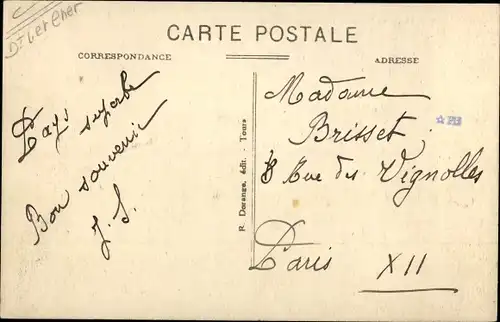 CARTE POSTALE
CORRESPONDANCE
ADRESSE
Pays superbe
Bon souvenir
J. S.
R. Dorange, édit. - Tours
Madame
Brisset
8 Rue des Vignolles
Paris XII